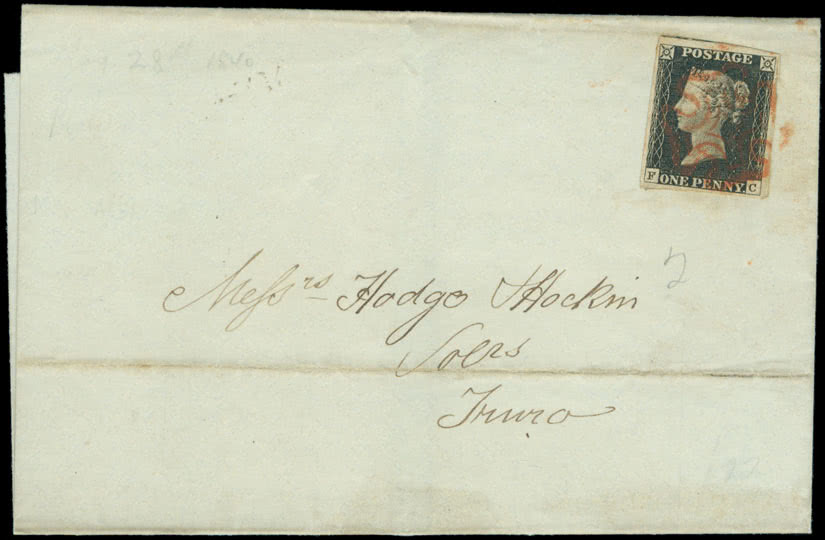 28th 1840
POSTAGE
F ONE PENNY C
Messrs Hodge & Hockin
Solrs
Truro